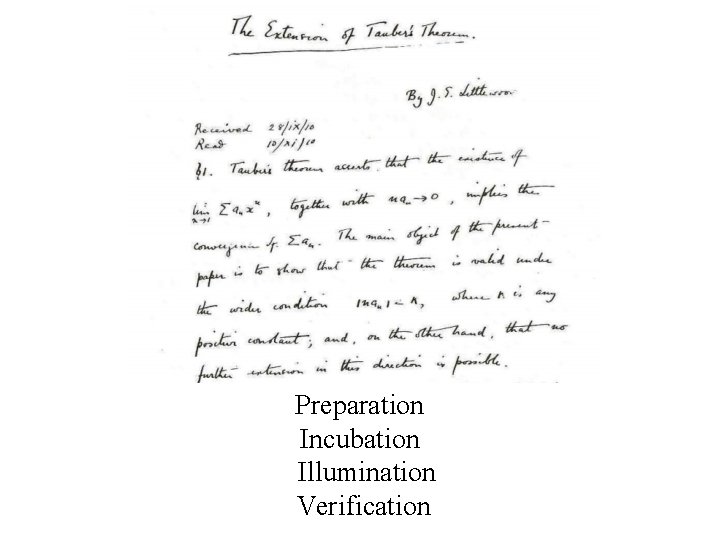 The Extension of Tauber's Theorem.
By J. E. Littlewood
Received 28/ix/10
Read 10/xi/10
§1. Tauber's theorem asserts that the existence of
lim Σ aₙxⁿ, together with naₙ→0, implies the
x→1
convergence of Σaₙ. The main object of the present
paper is to show that the theorem is valid under
the wider condition |naₙ| < K, where K is any
positive constant; and, on the other hand, that no
further extension in this direction is possible.
Preparation
Incubation
Illumination
Verification